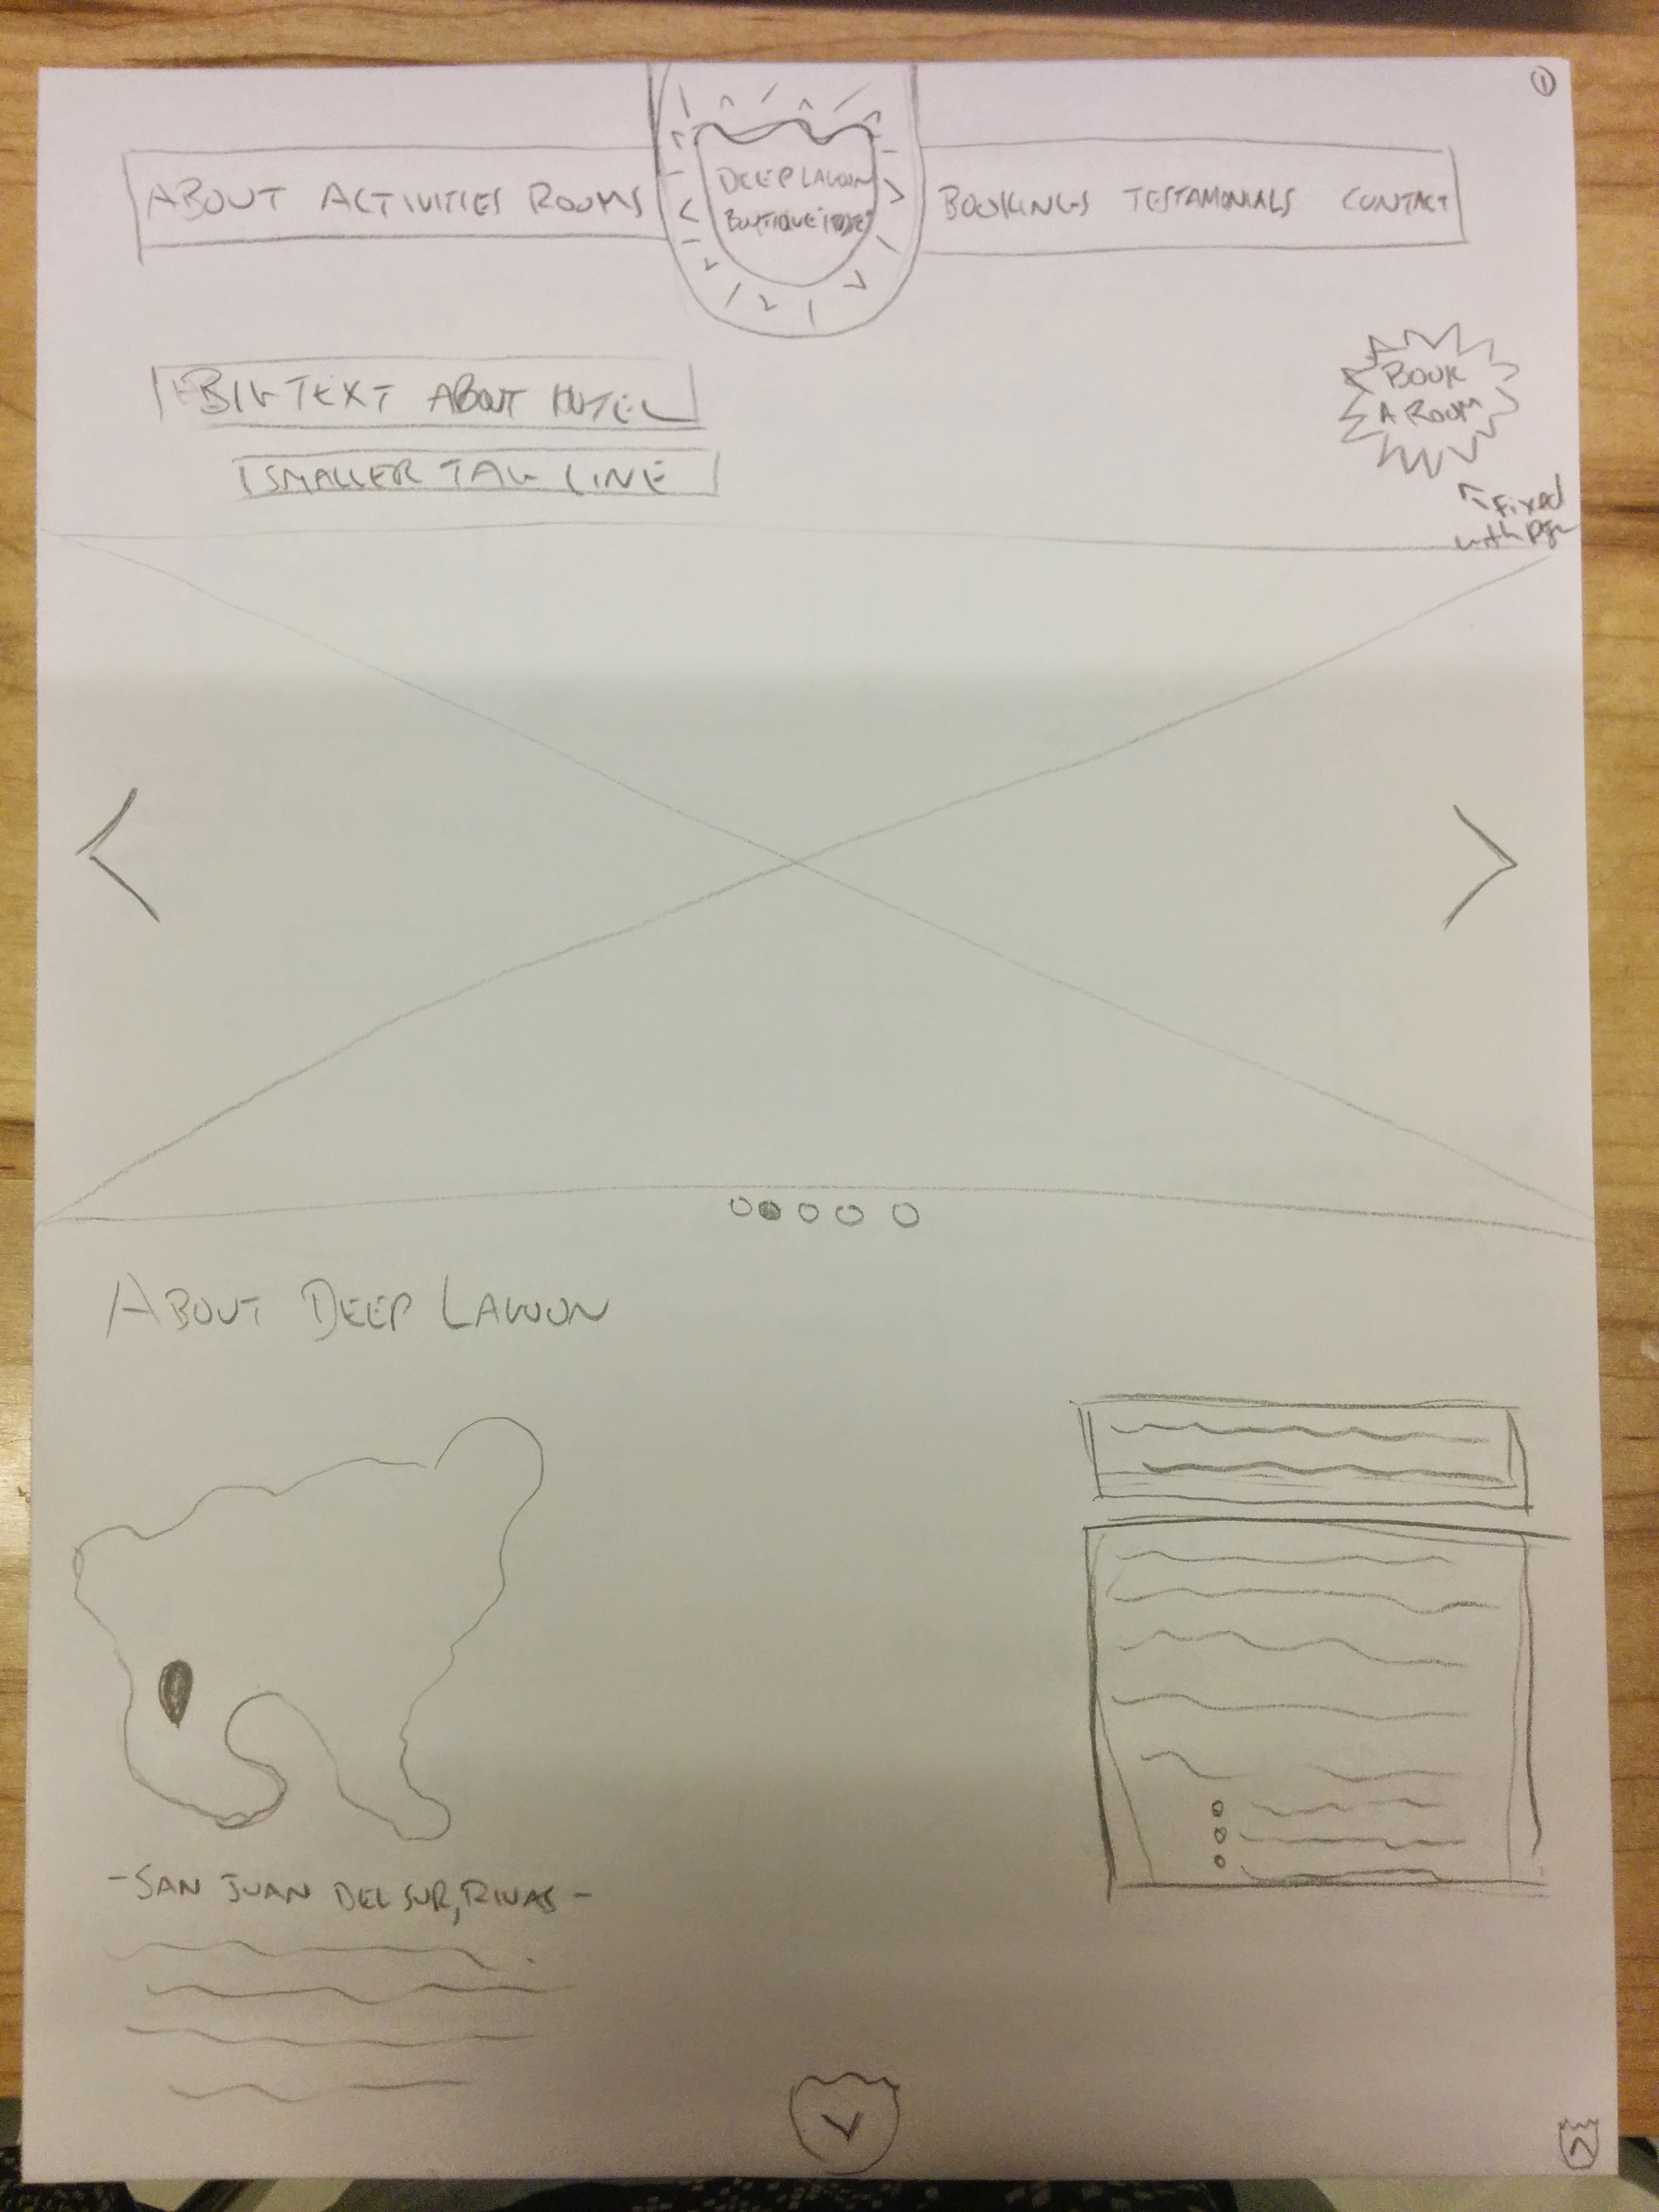 ①
ABOUT ACTIVITIES ROOMS
DEEP LAGOON
BOUTIQUE
BOOKINGS TESTAMONIALS CONTACT
BIG TEXT ABOUT HOTEL
SMALLER TAG LINE
BOOK
A ROOM
Fixed
with
ABOUT DEEP LAGOON
-SAN JUAN DEL SUR, RIVAS-